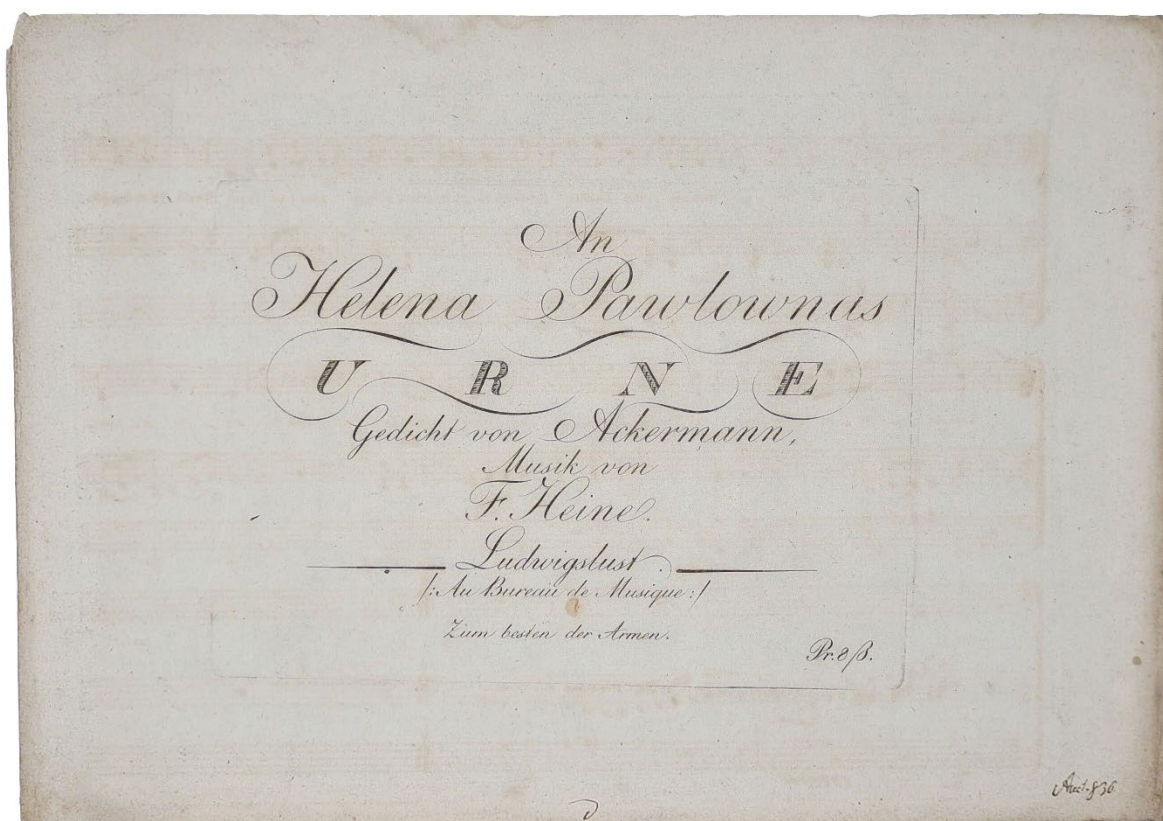 An
Helena Pawlownas
URNE
Gedicht von Ackermann,
Musik von
F. Heine.
Ludwigslust
/: Au Bureau de Musique :/
Zum besten der Armen.
Pr. 8 ß.